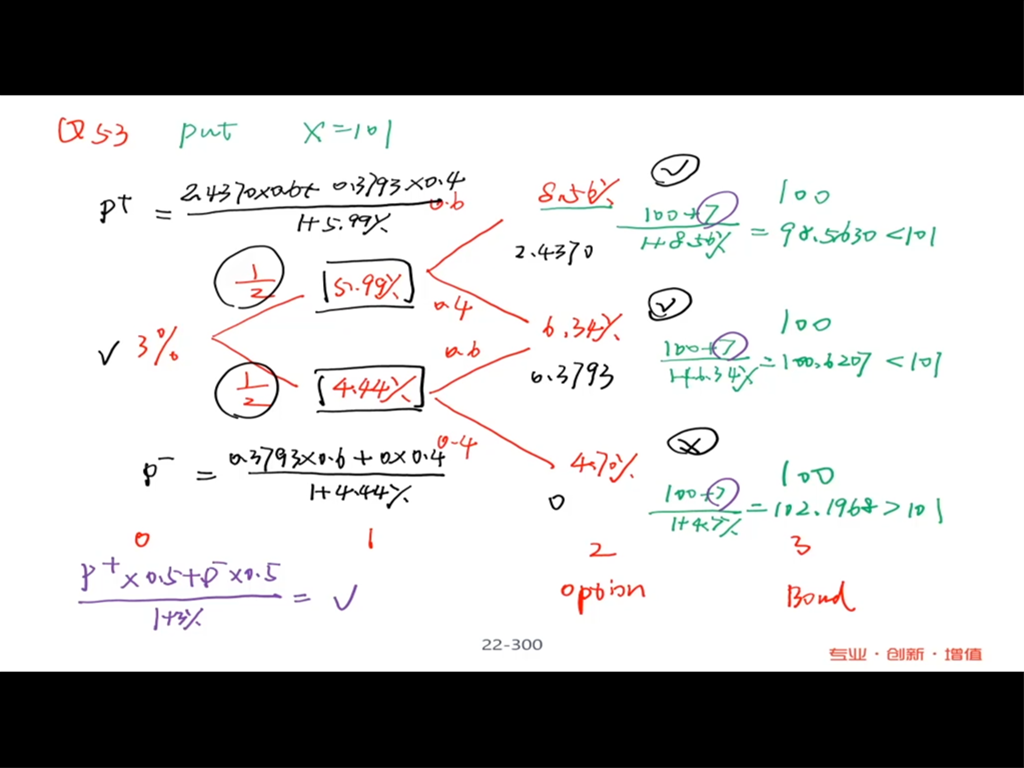 Q53 put X=101
P⁺ = (2.4370×0.6+ 0.3793×0.4)/(1+5.99%)
0.6
8.56%
2.4370
✓
(100+7)/(1+8.56%) = 98.5630 < 101
100
1/2
[5.99%]
0.4
✓ 3%
6.34%
0.3793
✓
(100+7)/(1+6.34%) = 100.6207 < 101
100
0.6
1/2
[4.44%]
0.4
P⁻ = (0.3793×0.6 + 0×0.4)/(1+4.44%)
4.70%
0
×
(100+7)/(1+4.7%) = 102.1968 > 101
100
0 1 2 3
option Bond
(P⁺×0.5+P⁻×0.5)/(1+3%) = ✓
22-300
专业·创新·增值